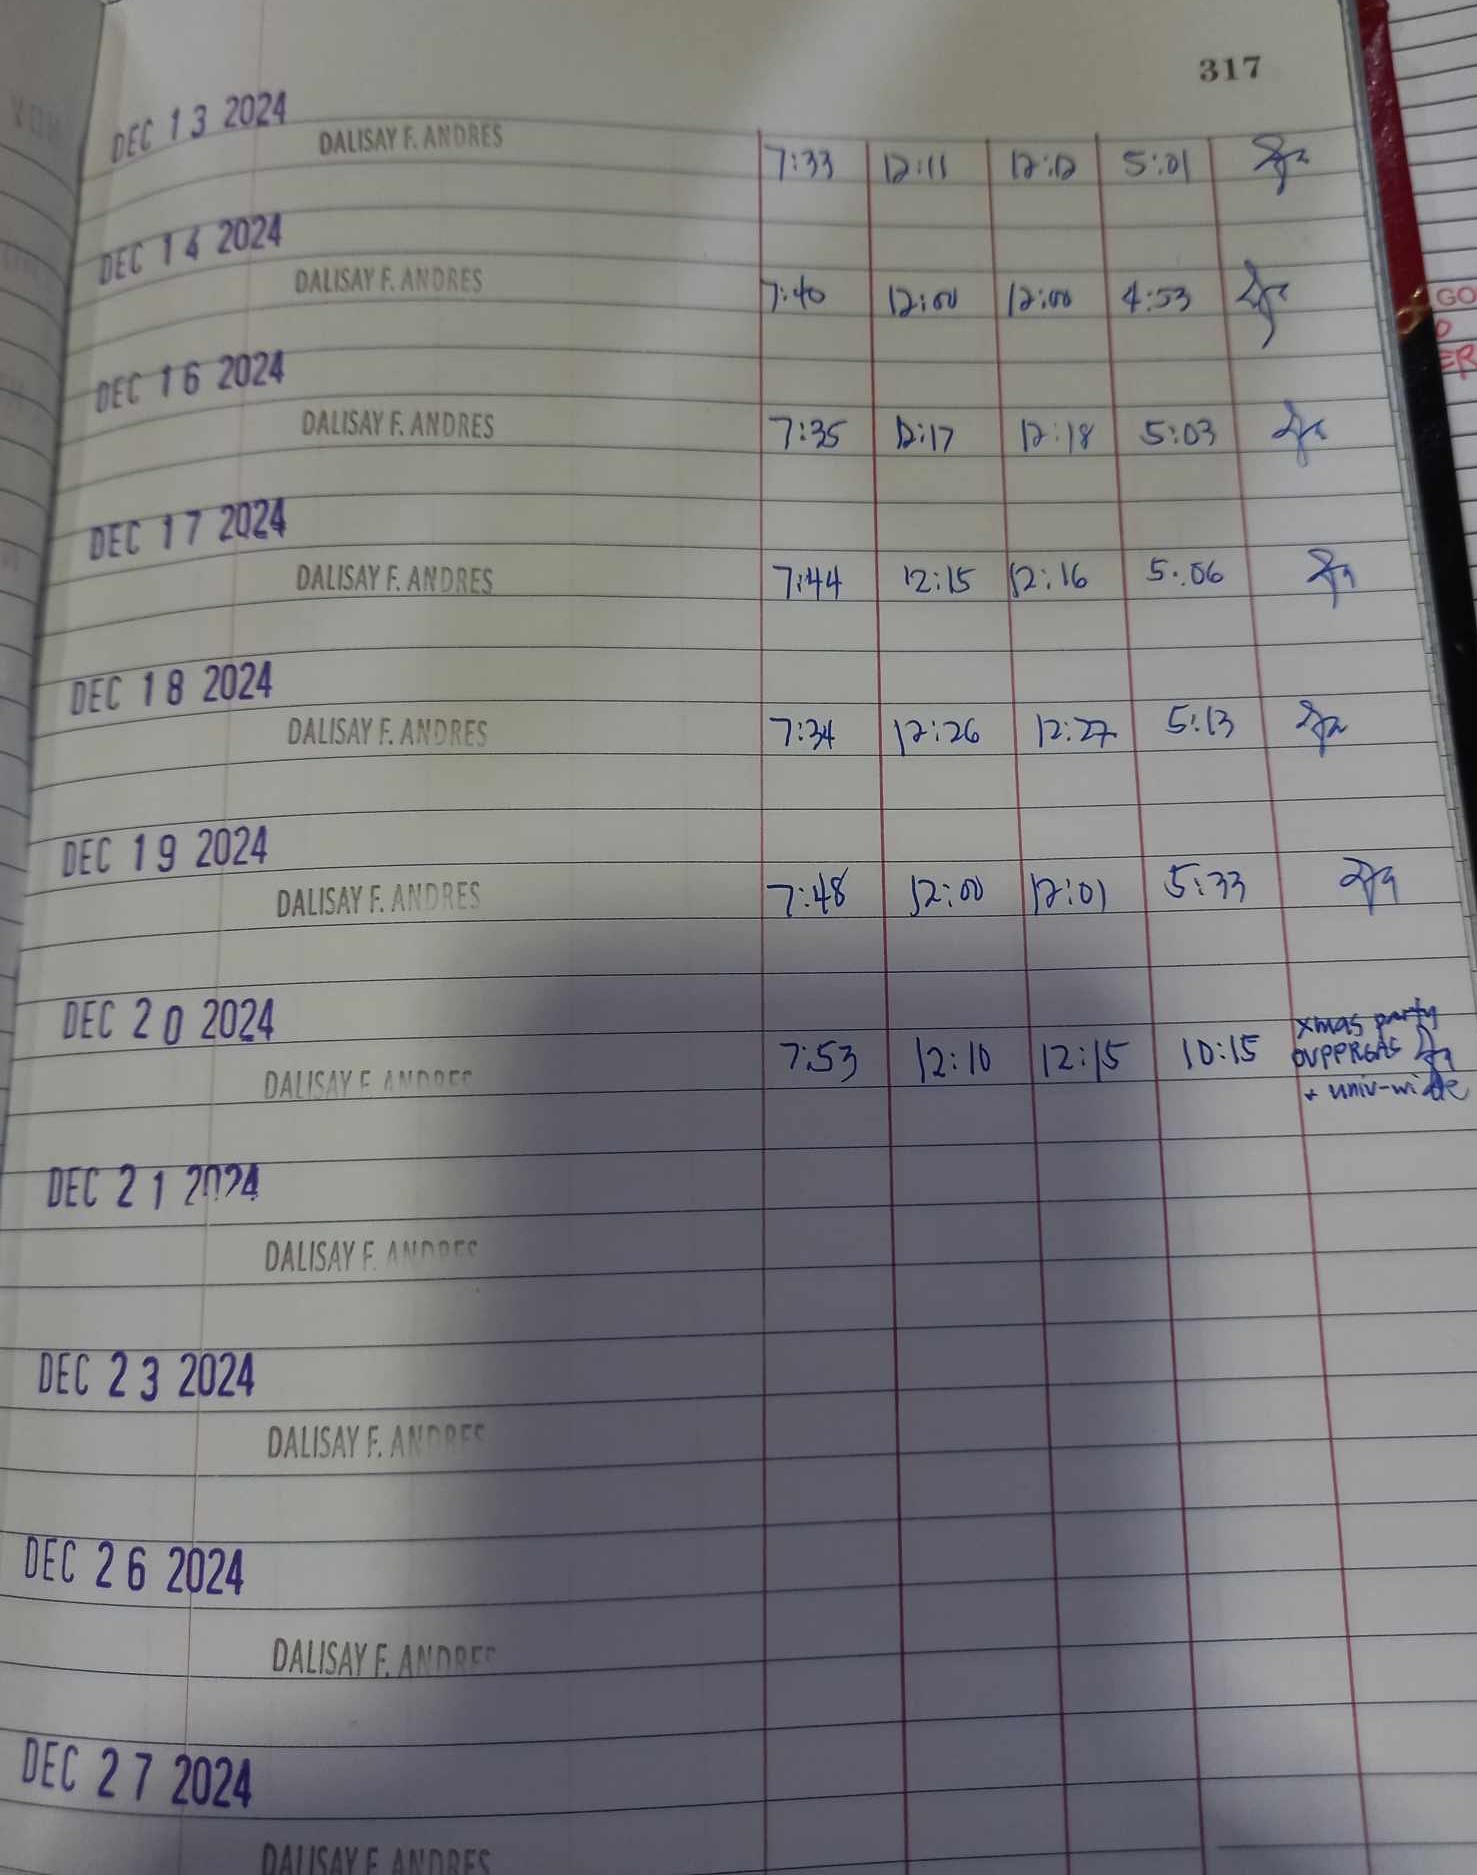 317
DEC 13 2024
DALISAY F. ANDRES 7:33 12:11 12:12 5:01
DEC 14 2024
DALISAY F. ANDRES 7:40 12:00 12:00 4:53
DEC 16 2024
DALISAY F. ANDRES 7:35 12:17 12:18 5:03
DEC 17 2024
DALISAY F. ANDRES 7:44 12:15 12:16 5:06
DEC 18 2024
DALISAY F. ANDRES 7:34 12:26 12:27 5:13
DEC 19 2024
DALISAY F. ANDRES 7:48 12:00 12:01 5:33
DEC 20 2024
xmas party
DALISAY F. ANDRES 7:53 12:10 12:15 10:15 OVPPRGAS
+ univ-wide
DEC 21 2024
DALISAY F. ANDRES
DEC 23 2024
DALISAY F. ANDRES
DEC 26 2024
DALISAY F. ANDRES
DEC 27 2024
DALISAY F. ANDRES
GO
ER